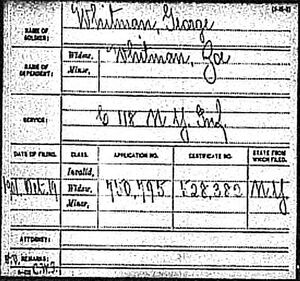 Whitman, George
NAME OF SOLDIER:
NAME OF DEPENDENT:
Widow,
Minor,
Whitman, Zoe
SERVICE:
C 118 N.Y. Inf
DATE OF FILING.
CLASS.
APPLICATION NO.
CERTIFICATE NO.
STATE FROM WHICH FILED.
Invalid,
Oct. 19
Widow,
750,795
528,382
N.Y.
Minor,
ATTORNEY:
REMARKS: